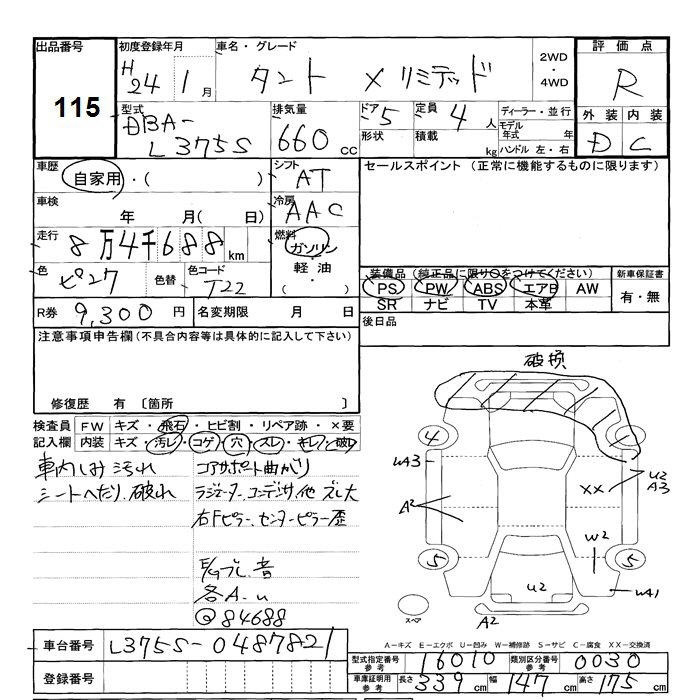 出品番号 初度登録年月 車名・グレード 評価点
115 H24年1月 タント X リミテッド 2WD・4WD R
型式 排気量 ドア 定員 ディーラー・並行 外装 内装
DBA-L375S 660cc 5 4人 モデル年式 年 D C
形状 積載 kg ハンドル 左・右
車歴 シフト セールスポイント (正常に機能するものに限ります)
自家用・( ) AT
車検 冷房
年 月( 日) AAC
走行 燃料
8万4千688km ガソリン
色 色替 色コード 軽油
ピンク T22 ・( )
装備品 (純正品に限り○をつけてください) 新車保証書
PS PW ABS エアB AW 有・無
SR ナビ TV 本革
R券 9,300円 名変期限 月 日 後日品
注意事項申告欄 (不具合内容等は具体的に記入して下さい)
修復歴 有 〔箇所
検査員 FW キズ・飛石・ヒビ割・リペア跡・×要
記入欄 内装 キズ・汚レ・コゲ・穴・スレ・キレ・破レ
車内しみ 汚れ コアサポート曲がり
シートへたり、破れ ラジエーター、コンデンサ、他ズレ大
右Fピラー、センターピラー歪
E/Gブレ、音
各A.u
@84688
破損
4
UA3 U2
A3
XX
A2
W2
5 5
U2 UA1
スペア A2
A-キズ E-エクボ U-凹み W-補修跡 S-サビ C-腐食 XX-交換済
車台番号 L375S-0487821
型式指定番号 参考 16010 類別区分番号 参考 0030
登録番号
車庫証明用 参考 長さ 339cm 幅 147cm 高さ 175cm